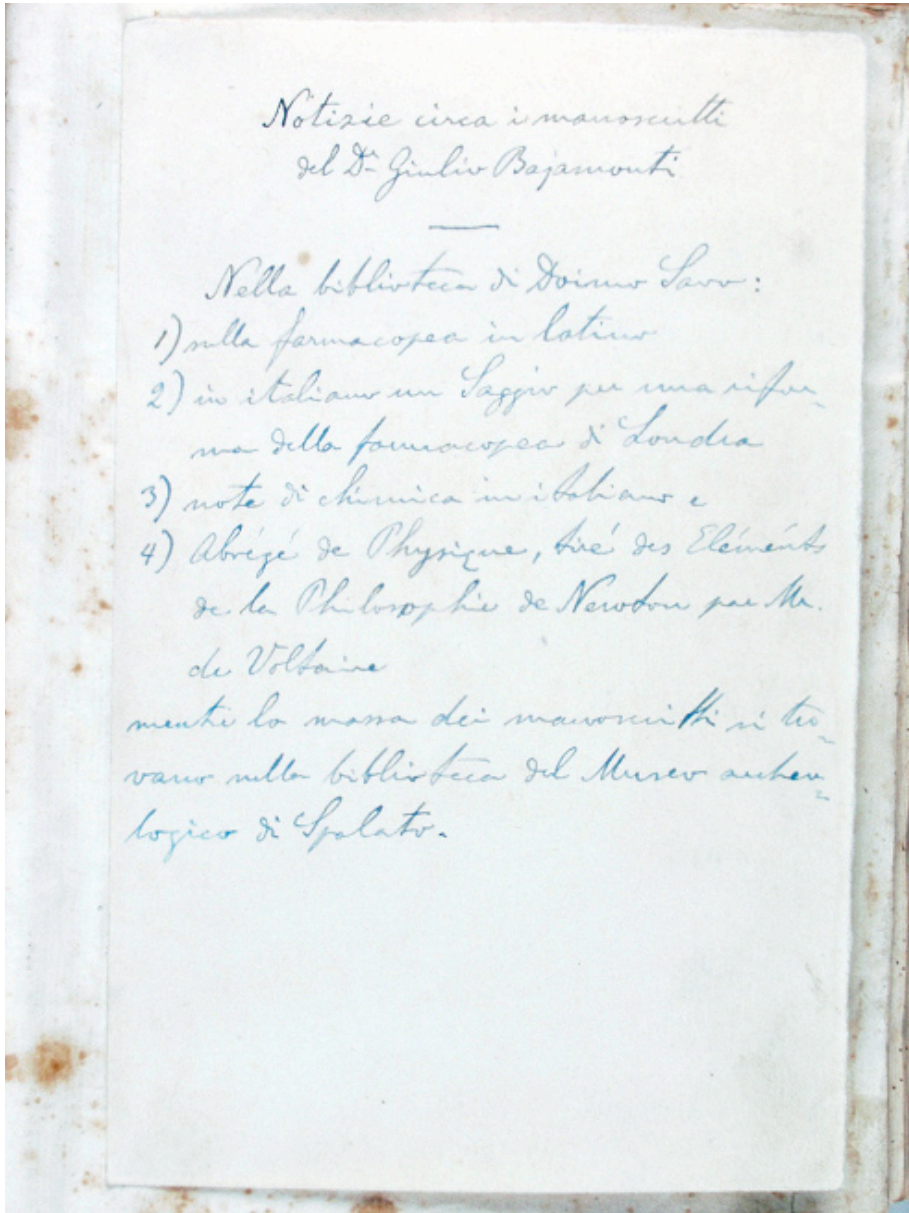 Notizie circa i manoscritti
del Dr Giulio Bajamonti
Nella biblioteca di Doimo Savo:
1) sulla farmacopea in latino
2) in italiano un Saggio per una rifor=
ma della farmacopea di Londra
3) note di chimica in italiano e
4) Abrégé de Physique, tiré des Eléménts
de la Philosophie de Newton par Mr.
de Voltaire
mentre la massa dei manoscritti si tro=
vano nella biblioteca del Museo archeo=
logico di Spalato.